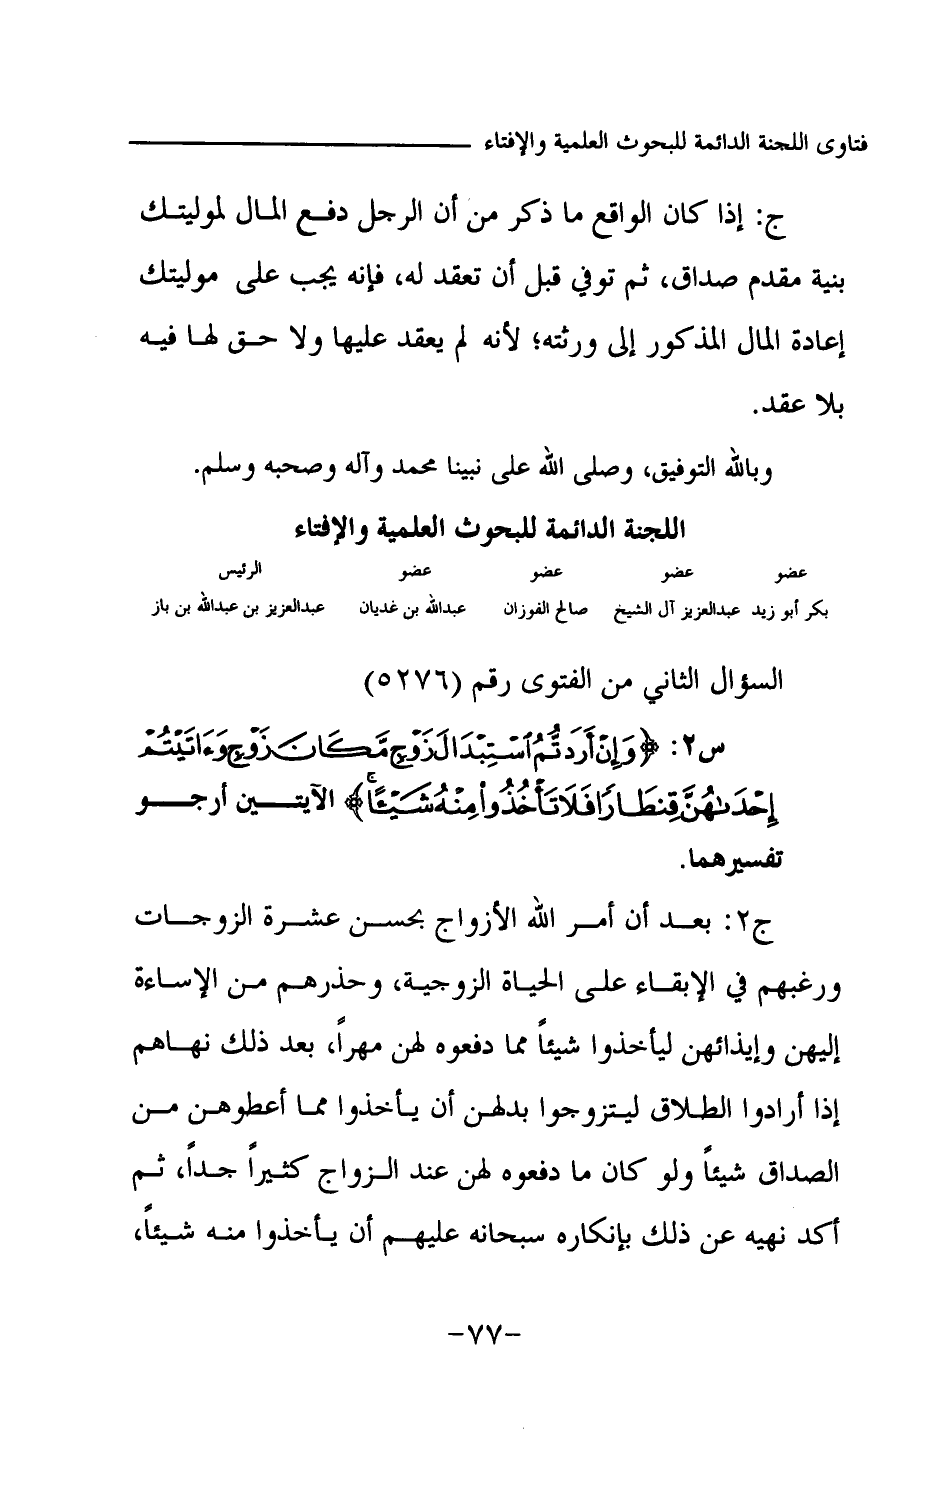 فتاوى اللجنة الدائمة للبحوث العلمية والإفتاء
ج: إذا كان الواقع ما ذكر من أن الرجل دفع المال لموليتك
بنية مقدم صداق، ثم توفي قبل أن تعقد له، فإنه يجب على موليتك
إعادة المال المذكور إلى ورثته؛ لأنه لم يعقد عليها ولا حق لها فيه
بلا عقد.
وبالله التوفيق، وصلى الله على نبينا محمد وآله وصحبه وسلم.
اللجنة الدائمة للبحوث العلمية والإفتاء
عضو عضو عضو عضو الرئيس
بكر أبو زيد عبدالعزيز آل الشيخ صالح الفوزان عبدالله بن غديان عبدالعزيز بن عبدالله بن باز
السؤال الثاني من الفتوى رقم (٥٢٧٦)
س٢: ﴿وَإِنْ أَرَدتُّمُ ٱسْتِبْدَالَ زَوْجٍ مَّكَانَ زَوْجٍ وَءَاتَيْتُمْ
إِحْدَىٰهُنَّ قِنطَارًا فَلَا تَأْخُذُوا۟ مِنْهُ شَيْـًٔا ۚ﴾ الآيتين أرجو
تفسيرهما.
ج٢: بعد أن أمر الله الأزواج بحسن عشرة الزوجات
ورغبهم في الإبقاء على الحياة الزوجية، وحذرهم من الإساءة
إليهن وإيذائهن ليأخذوا شيئاً مما دفعوه لهن مهراً، بعد ذلك نهاهم
إذا أرادوا الطلاق ليتزوجوا بدلهن أن يأخذوا مما أعطوهن من
الصداق شيئاً ولو كان ما دفعوه لهن عند الزواج كثيراً جداً، ثم
أكد نهيه عن ذلك بإنكاره سبحانه عليهم أن يأخذوا منه شيئاً،
-٧٧-